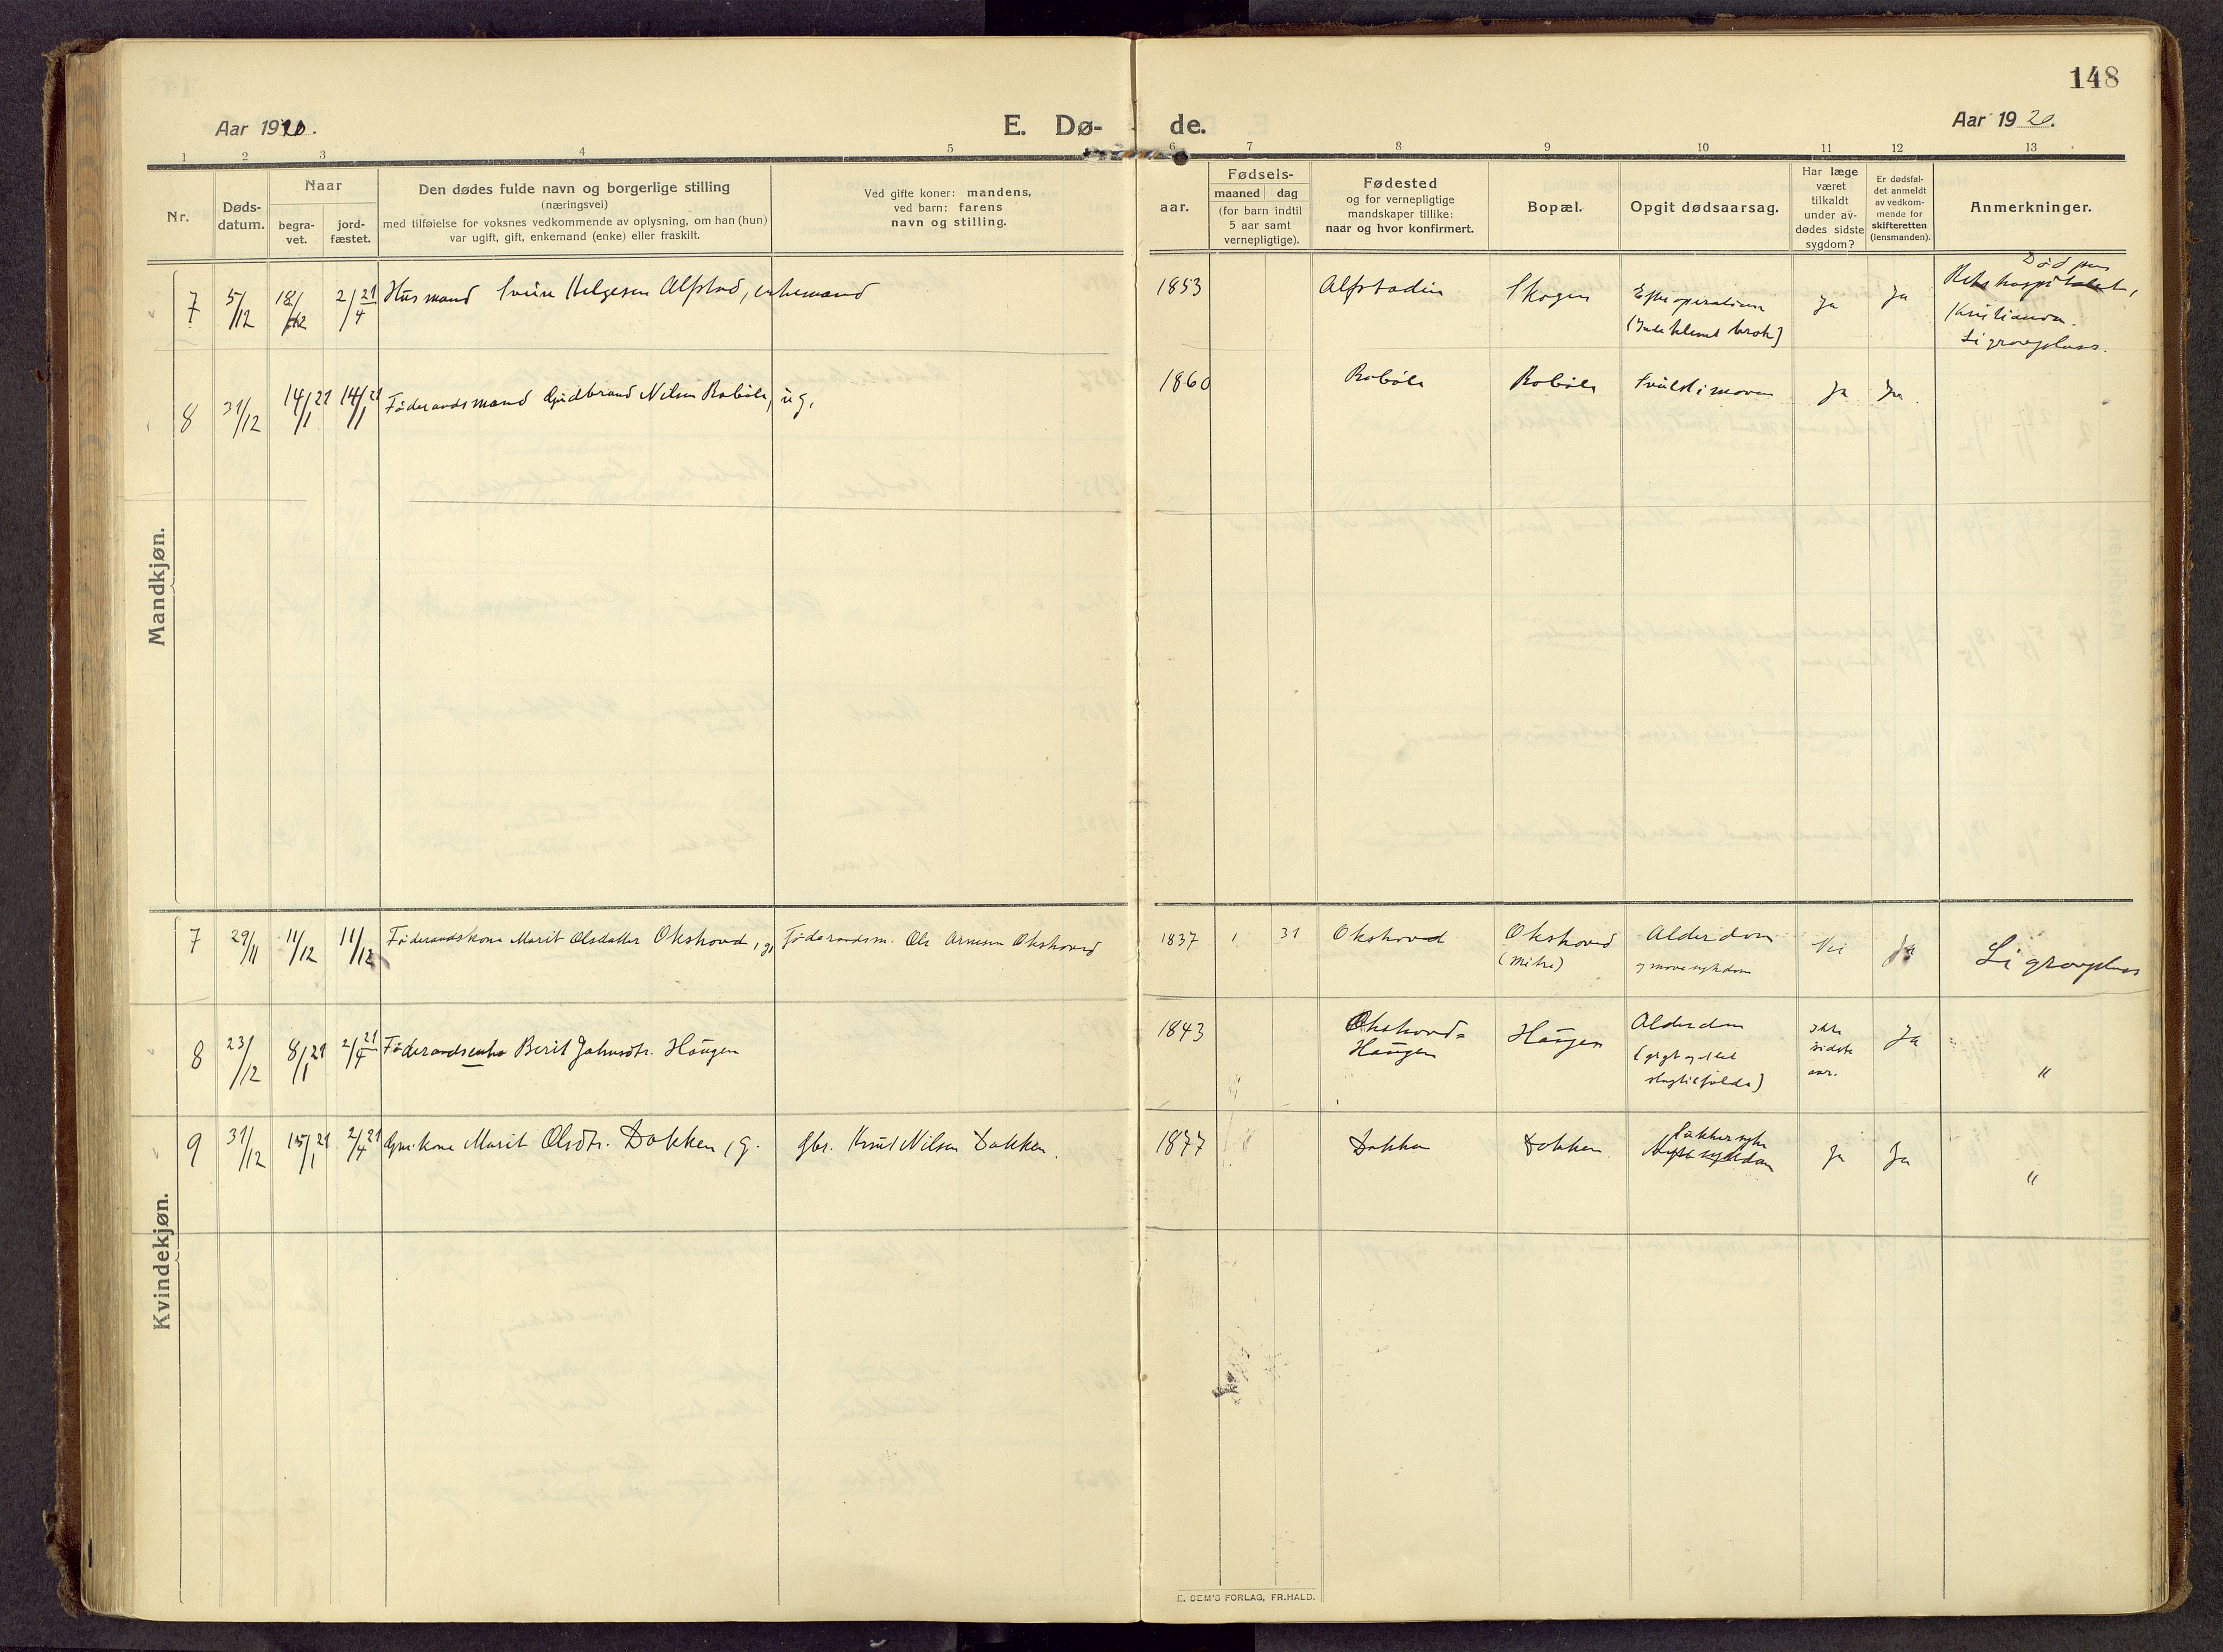 148
Aar 1920.
E. Dø-
de.
Aar 1920.
1 2 3 4 5 6 7 8 9 10 11 12 13
Nr.
Døds-
datum.
Naar
begra-
vet.
jord-
fæstet.
Den dødes fulde navn og borgerlige stilling
(næringsvei)
med tilføielse for voksnes vedkommende av oplysning, om han (hun)
var ugift, gift, enkemand (enke) eller fraskilt.
Ved gifte koner: mandens,
ved barn: farens
navn og stilling.
Fødsels-
aar.
maaned dag
(for barn indtil
5 aar samt
vernepligtige).
Fødested
og for vernepligtige
mandskaper tillike:
naar og hvor konfirmert.
Bopæl.
Opgit dødsaarsag.
Har læge
været
tilkaldt
under av-
dødes sidste
sygdom?
Er dødsfal-
det anmeldt
av vedkom-
mende for
skifteretten
(lensmanden).
Anmerkninger.
Mandkjøn.
7 5/12 18/12 2/4 21 Husmand Svein Helgesen Alfstad, enkemand 1853 Alfstadin Skogen Efter operation Ja Ja Død paa
(Indeklemt brok) Rikshospitalet,
Kristiania.
Li gravplass.
8 31/12 14/1 21 14/1 21 Føderaadsmand Gudbrand Nilsen Robøle, ug. 1860 Robøle Robøle Svulst i maven Ja Ja
Kvindekjøn.
7 29/11 11/12 11/12 Føderaadskone Marit Olsdatter Okshovd, g, Føderaadsm. Ole Arnesen Okshovd 1837 1 31 Okshovd Okshovd Alderdom Nei Ja Li gravplass
(Mitre) og mavesykdom
8 23/12 8/1 21 2/4 21 Føderaadsenke Berit Johnsdtr. Haugen 1843 Okshovd-
Haugen Haugen Alderdom ikke
sidste
aar. Ja "
9 31/12 15/1 21 2/4 21 Grd.kone Marit Olsdtr. Dokken, g. gbr. Knut Nilsen Dokken. 1877 Dokken Dokken Sukkersyke Ja Ja "
E. SEM'S FORLAG, FR.HALD.